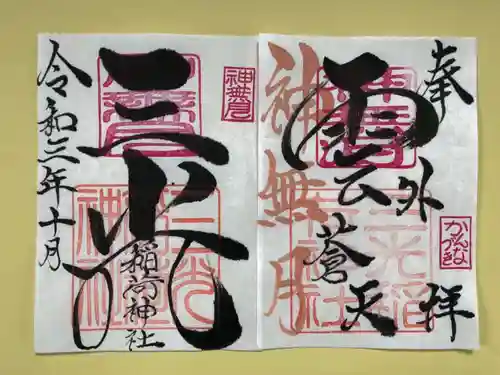 奉拝
かんな
づき
雲外蒼天
三光稲
荷神社
神無月
三光
稲荷神社
令和三年十月